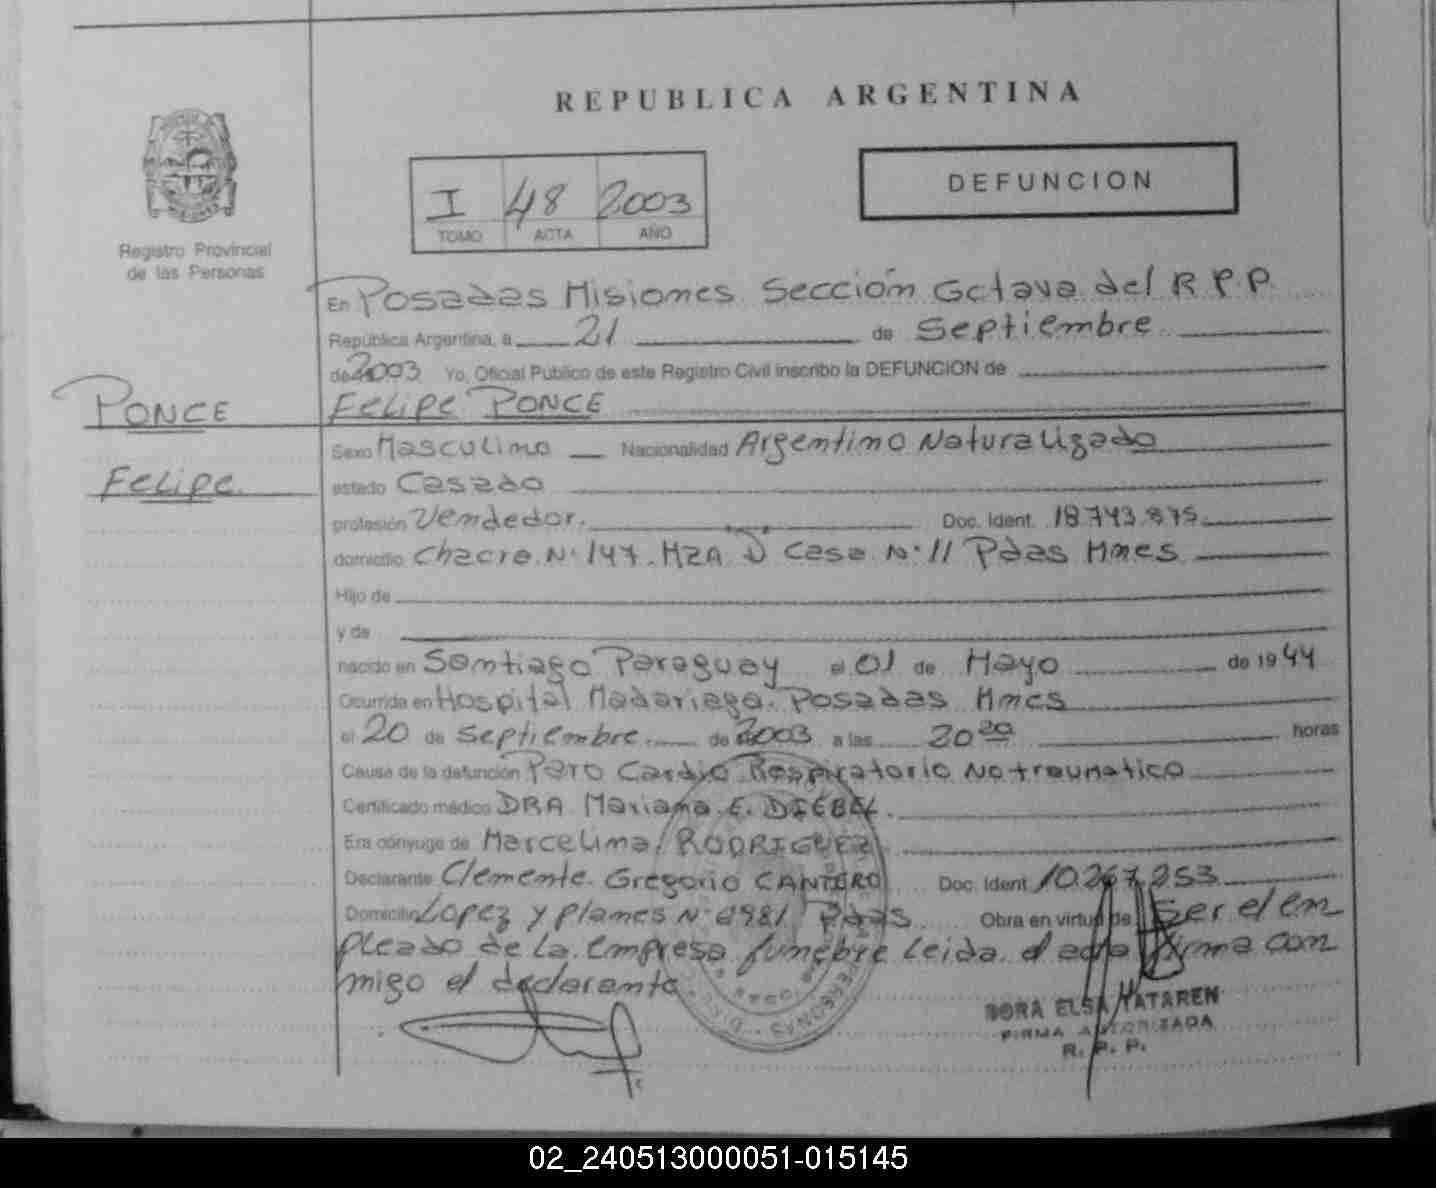 REPUBLICA ARGENTINA
I 48 2003
TOMO ACTA AÑO
DEFUNCION
Registro Provincial
de las Personas
En Posadas Misiones Sección Octava del R.P.P.
República Argentina, a 21 de Septiembre
de 2003 Yo, Oficial Público de este Registro Civil inscribo la DEFUNCION de
PONCE
Felipe PONCE
Felipe
Sexo Masculino Nacionalidad Argentino Naturalizado
estado Casado
profesión Vendedor. Doc. Ident. 18.743.875
domicilio Chacra Nº 147. MZA D Casa Nº 11 Pdas Mnes
Hijo de
y de
nacido en Santiago Paraguay el 01 de Mayo de 1944
Ocurrida en Hospital Madariaga. Posadas Mnes
el 20 de Septiembre de 2003 a las 20 20 horas
Causa de la defunción Paro Cardio Respiratorio No traumatico
Certificado médico DRA. Mariana E. DIEBEL.
Era cónyuge de Marcelina RODRIGUEZ
Declarante Clemente Gregorio CANTERO Doc. Ident. 10.267.253
Domicilio Lopez y planes Nº 6981 Pdas Obra en virtud de Ser el em
pleado de la empresa funebre Leida el acta firma con
migo el declarante
DORA ELSA MATAREN
FIRMA AUTORIZADA
R. P. P.
02_240513000051-015145